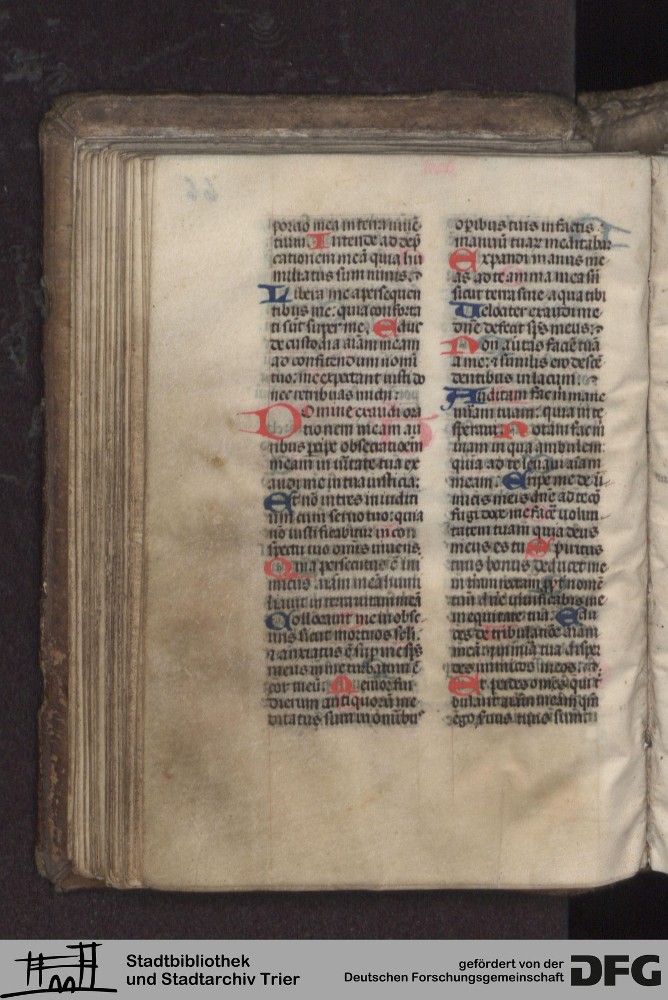 portio mea in terra viuē
tium. Intende ad dep̄
cationem meā quia hu
miliatus sum nimis.
Libera me a persequen
tibus me: quia conforta
ti sūt super me. Educ
de custodia aīam meam
ad confitendum nomī
tuo: me expectant iusti do
nec retribuas michi.
Domine exaudi ora
tionem meam au
ribus ꝑcipe obsecratiōem
meam in uītate tua ex
audi me in tua iusticia:
Et nō intres in iuditi
um cum seruo tuo: quia
nō iustificabitur in con
spectu tuo omīs viuens.
Quia persecutus ē ini
micus aīam meā humi
liauit in terra uitam meā
Collocauit me in obscu
ris sicut mortuos seli.
⁊ anxiatus ē suꝑ me sp̄s
meus in me turbatum ē
cor meū. Memor fui
dierum antiquorū me
ditatus sum in omībus
opibus tuis in factis
manuū tuaꝝ meditabar
Expandi manus me
as ad te anima mea sīt
sicut terra sine aqua tibi
Velociter exaudi me
dn̄e defecit sp̄s meus:
Non auertas faciē tuā
a me: ⁊ similis ero descē
dentibus in lacum.
Auditam fac m̄ mane
mīam tuam: quia in te
speraui. Notam fac m̄
uiam in qua ambulem:
quia ad te leuaui aīam
meam. Eripe me de ī
imicis meis dn̄e ad te cō
fugi doce me facē uolun
tatem tuam quia deus
meus es tu. Spiritus
tuus bonus deducet me
in t̄ram rectam ꝓpt̄ nomē
tuū dn̄e uiuificabis me
in equitate tua. Edu
ces de tribulatiōe aīam
meā: ⁊ in mīa tua disper
des inimicos meos.
Et perdes omēs qui t̄
bulant aīam meam qm̄
ego seruus tuus sum.
Stadtbibliothek
und Stadtarchiv Trier
gefördert von der
Deutschen Forschungsgemeinschaft
DFG